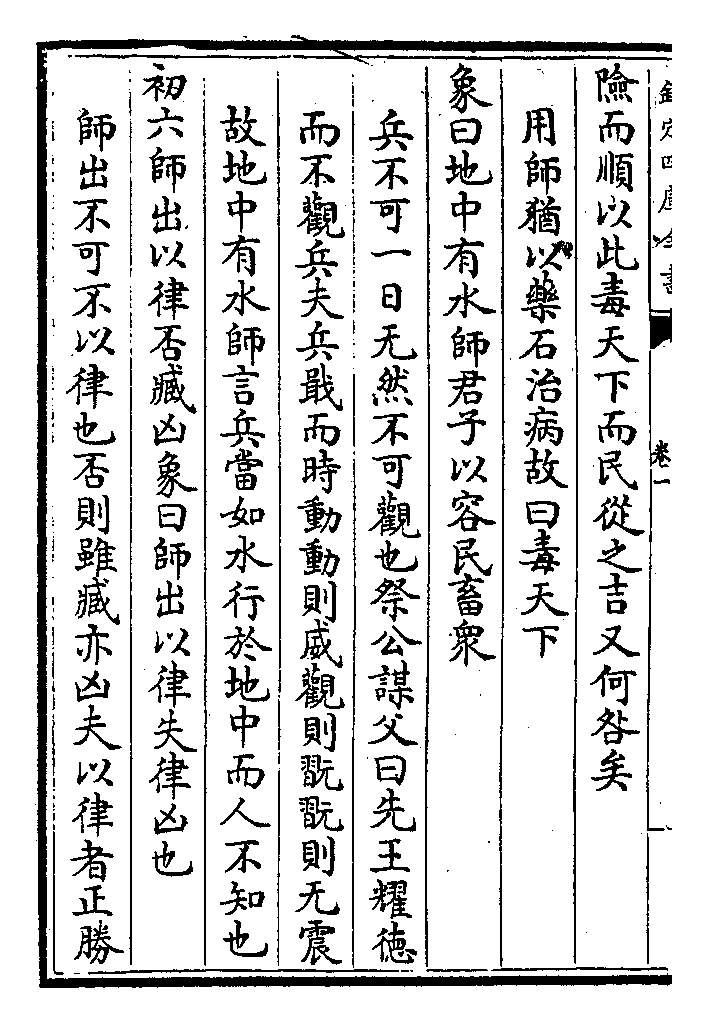 欽定四庫全書
卷一
險而順以此毒天下而民從之吉又何咎矣
用師猶以藥石治病故曰毒天下
象曰地中有水師君子以容民畜衆
兵不可一日无然不可觀也祭公謀父曰先王耀德
而不觀兵夫兵戢而時動動則威觀則翫翫則无震
故地中有水師言兵當如水行於地中而人不知也
初六師出以律否臧凶象曰師出以律失律凶也
師出不可不以律也否則雖臧亦凶夫以律者正勝